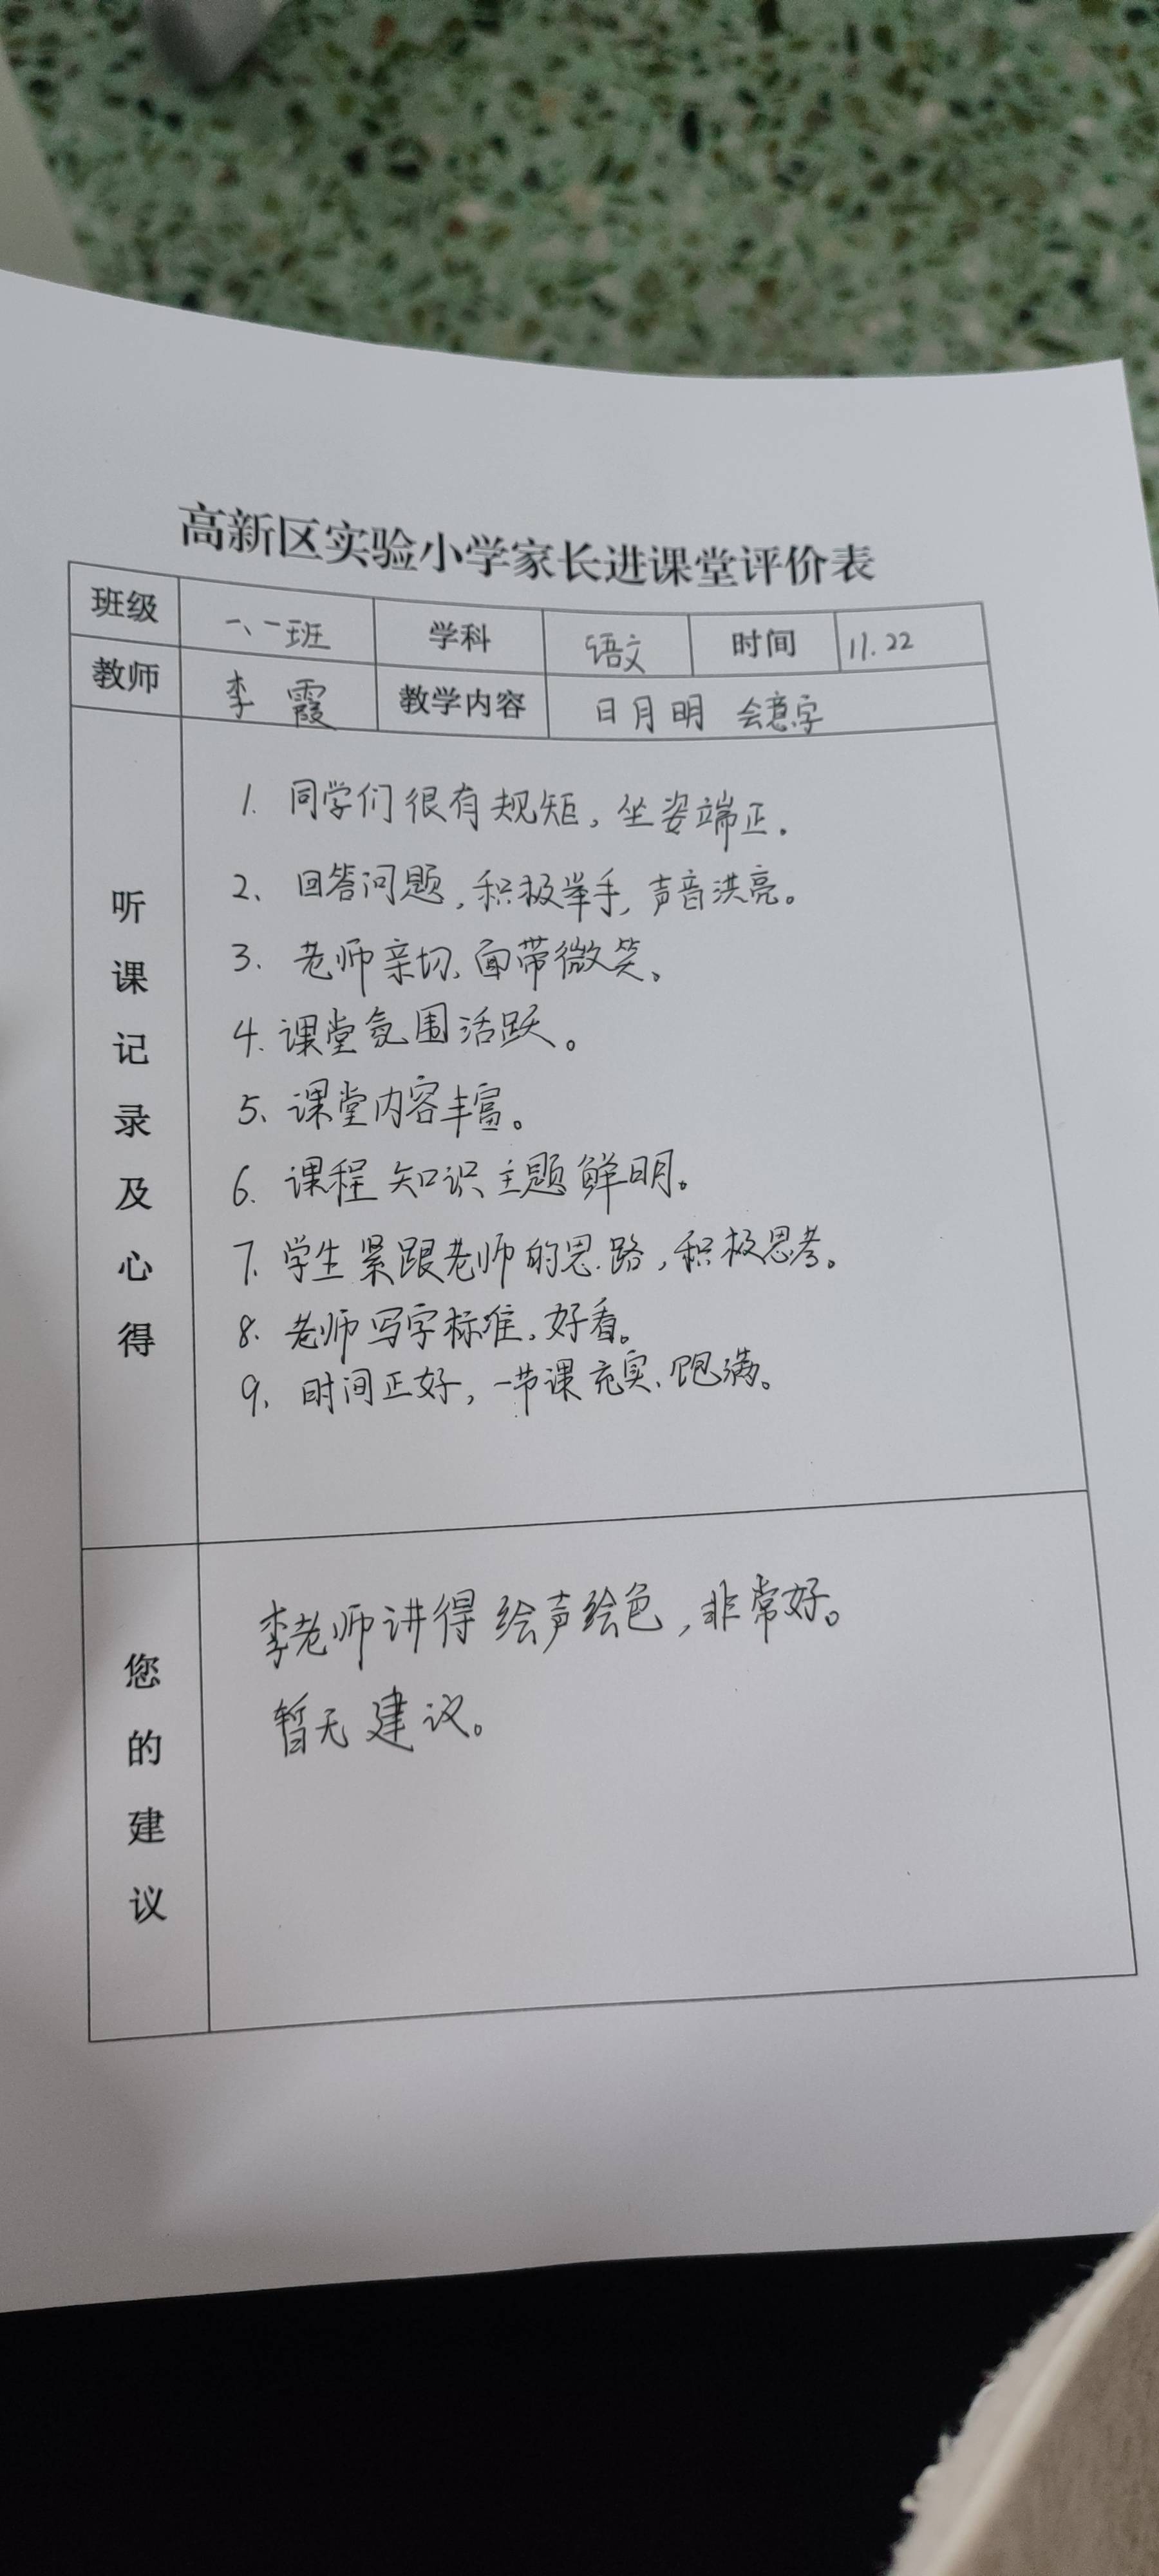 高新区实验小学家长进课堂评价表
班级 一、一班 学科 语文 时间 11.22
教师 李霞 教学内容 日月明 会意字
听课记录及心得
1. 同学们很有规矩，坐姿端正.
2、回答问题，积极举手，声音洪亮。
3、老师亲切、面带微笑、
4. 课堂氛围活跃。
5、课堂内容丰富。
6. 课程知识主题鲜明。
7. 学生紧跟老师的思路，积极思考。
8. 老师写字标准、好看。
9、时间正好，一节课充实、饱满。
您的建议
李老师讲得绘声绘色，非常好。
暂无建议。